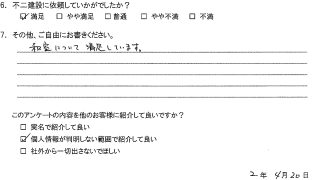 6. 不二建設に依頼していかがでしたか？
☑ 満足 □ やや満足 □ 普通 □ やや不満 □ 不満
7. その他、ご自由にお書きください。
和室について 満足しています。
このアンケートの内容を他のお客様に紹介して良いですか？
□ 実名で紹介して良い
☑ 個人情報が判明しない範囲で紹介して良い
□ 社外から一切出さないでほしい
2 年 4 月 20 日